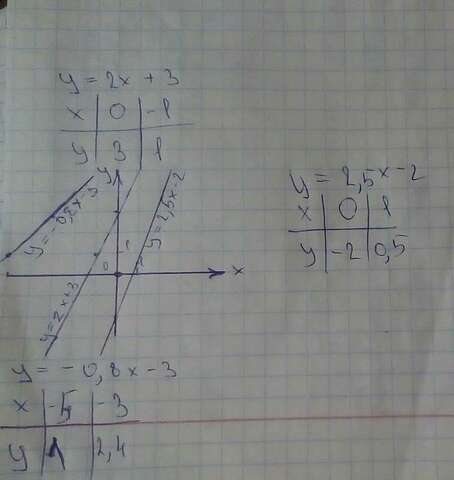 y = 2x + 3
x 0 -1
y 3 1
y
y=-0,8x-3
y=2,5x-2
1
0
x
y=2x+3
y = 2,5x-2
x 0 1
y -2 0,5
y = -0,8x-3
x -5 -3
y 1 2,4